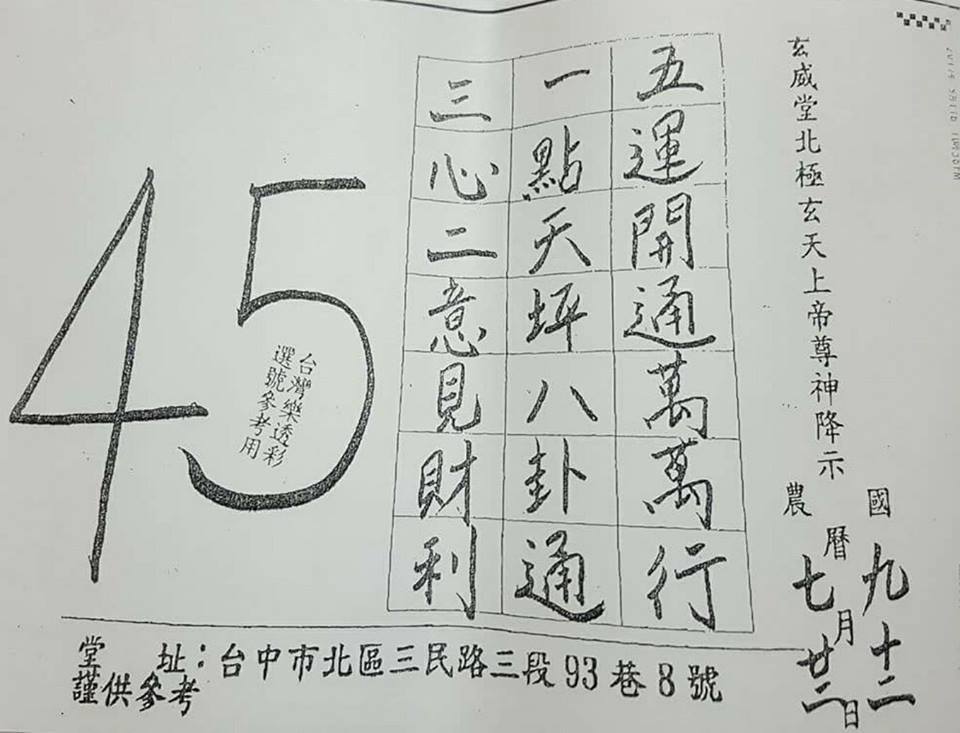 玄威堂北極玄天上帝尊神降示
國九十二
農曆七月廿二日
五運開通萬萬行
一點天坪八卦通
三心二意見財利
45
台灣樂透彩
選號參考用
堂址：台中市北區三民路三段93巷8號
謹供參考